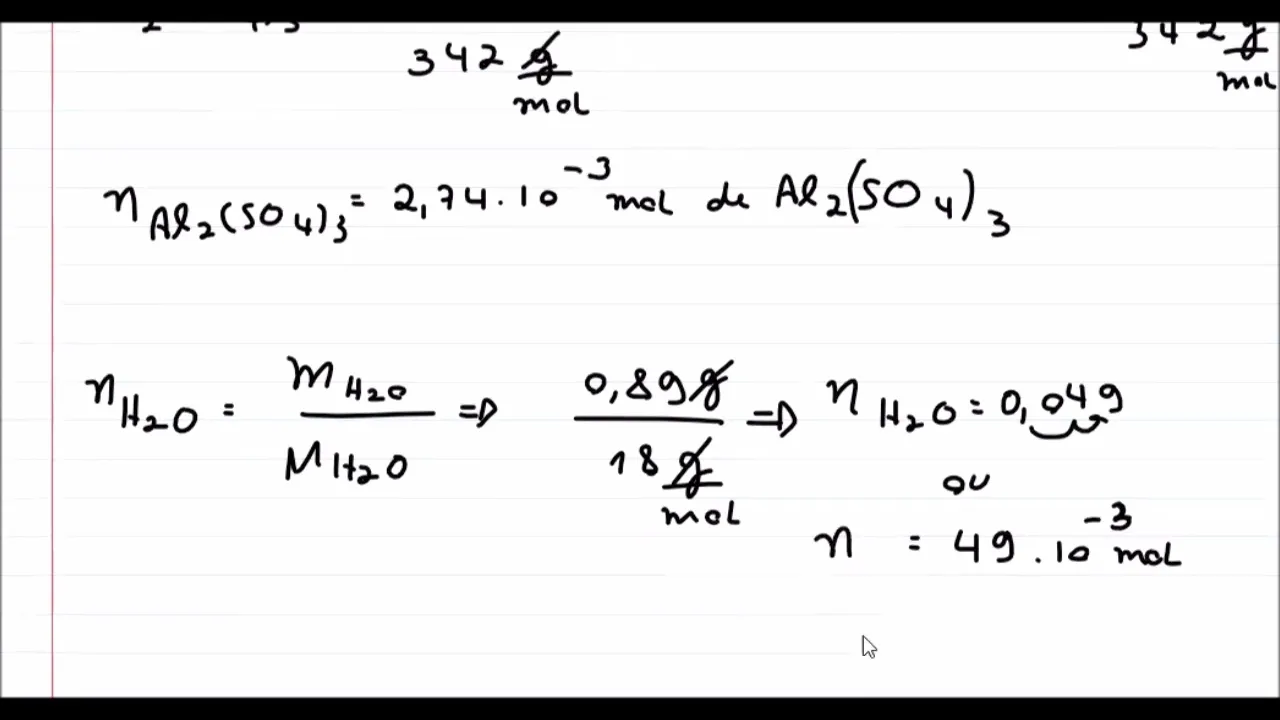 342 g/mol
342 g/mol
n Al₂(SO₄)₃ = 2,74.10⁻³ mol de Al₂(SO₄)₃
n H₂O = m H₂O / M H₂O ⇒ 0,89g / 18 g/mol ⇒ n H₂O = 0,049
ou
n = 49.10⁻³ mol